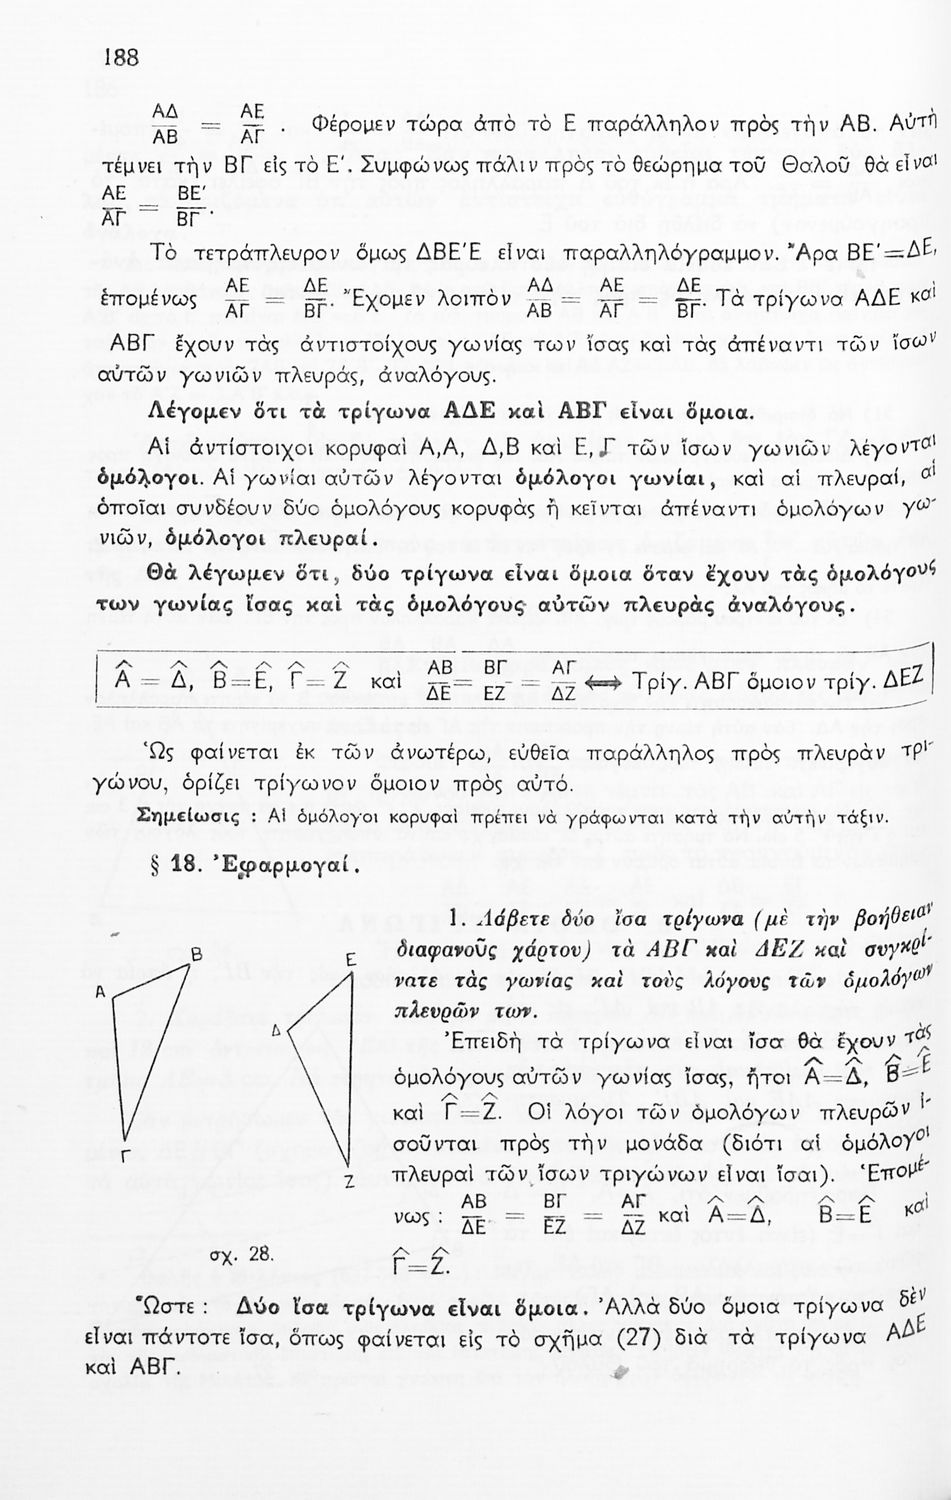 188
ΑΔ/ΑΒ = ΑΕ/ΑΓ . Φέρομεν τώρα ἀπὸ τὸ Ε παράλληλον πρὸς τὴν ΑΒ. Αὐτὴ
τέμνει τὴν ΒΓ εἰς τὸ Ε'. Συμφώνως πάλιν πρὸς τὸ θεώρημα τοῦ Θαλοῦ θὰ εἶναι
ΑΕ/ΑΓ = ΒΕ'/ΒΓ .
Τὸ τετράπλευρον ὅμως ΔΒΕ'Ε εἶναι παραλληλόγραμμον. Ἄρα ΒΕ'=ΔΕ,
ἑπομένως ΑΕ/ΑΓ = ΔΕ/ΒΓ. Ἔχομεν λοιπὸν ΑΔ/ΑΒ = ΑΕ/ΑΓ = ΔΕ/ΒΓ. Τὰ τρίγωνα ΑΔΕ καὶ
ΑΒΓ ἔχουν τὰς ἀντιστοίχους γωνίας των ἴσας καὶ τὰς ἀπέναντι τῶν ἴσων
αὐτῶν γωνιῶν πλευράς, ἀναλόγους.
Λέγομεν ὅτι τὰ τρίγωνα ΑΔΕ καὶ ΑΒΓ εἶναι ὅμοια.
Αἱ ἀντίστοιχοι κορυφαὶ Α,Α, Δ,Β καὶ Ε,Γ τῶν ἴσων γωνιῶν λέγονται
ὁμόλογοι. Αἱ γωνίαι αὐτῶν λέγονται ὁμόλογοι γωνίαι, καὶ αἱ πλευραί, αἱ
ὁποῖαι συνδέουν δύο ὁμολόγους κορυφὰς ἢ κεῖνται ἀπέναντι ὁμολόγων γω-
νιῶν, ὁμόλογοι πλευραί.
Θὰ λέγωμεν ὅτι, δύο τρίγωνα εἶναι ὅμοια ὅταν ἔχουν τὰς ὁμολόγους
των γωνίας ἴσας καὶ τὰς ὁμολόγους αὐτῶν πλευρὰς ἀναλόγους.
Α̂ = Δ̂, Β̂=Ε̂, Γ̂=Ζ̂ καὶ ΑΒ/ΔΕ = ΒΓ/ΕΖ = ΑΓ/ΔΖ ⟺ Τρίγ. ΑΒΓ ὅμοιον τρίγ. ΔΕΖ
Ὡς φαίνεται ἐκ τῶν ἀνωτέρω, εὐθεῖα παράλληλος πρὸς πλευρὰν τρι-
γώνου, ὁρίζει τρίγωνον ὅμοιον πρὸς αὐτό.
Σημείωσις : Αἱ ὁμόλογοι κορυφαὶ πρέπει νὰ γράφωνται κατὰ τὴν αὐτὴν τάξιν.
§ 18. Ἐφαρμογαί.
1. Λάβετε δύο ἴσα τρίγωνα (μὲ τὴν βοήθειαν
διαφανοῦς χάρτου) τὰ ΑΒΓ καὶ ΔΕΖ καὶ συγκρί-
νατε τὰς γωνίας καὶ τοὺς λόγους τῶν ὁμολόγων
πλευρῶν των.
Ἐπειδὴ τὰ τρίγωνα εἶναι ἴσα θὰ ἔχουν τὰς
ὁμολόγους αὐτῶν γωνίας ἴσας, ἤτοι Α̂=Δ̂, Β̂=Ε̂
καὶ Γ̂=Ζ̂. Οἱ λόγοι τῶν ὁμολόγων πλευρῶν ἰ-
σοῦνται πρὸς τὴν μονάδα (διότι αἱ ὁμόλογοι
πλευραὶ τῶν ἴσων τριγώνων εἶναι ἴσαι). Ἑπομέ-
νως : ΑΒ/ΔΕ = ΒΓ/ΕΖ = ΑΓ/ΔΖ καὶ Α̂=Δ̂, Β̂=Ε̂ καὶ
Γ̂=Ζ̂.
Α
Β
Γ
Ε
Δ
Ζ
σχ. 28.
Ὥστε : Δύο ἴσα τρίγωνα εἶναι ὅμοια. Ἀλλὰ δύο ὅμοια τρίγωνα δὲν
εἶναι πάντοτε ἴσα, ὅπως φαίνεται εἰς τὸ σχῆμα (27) διὰ τὰ τρίγωνα ΑΔΕ
καὶ ΑΒΓ.